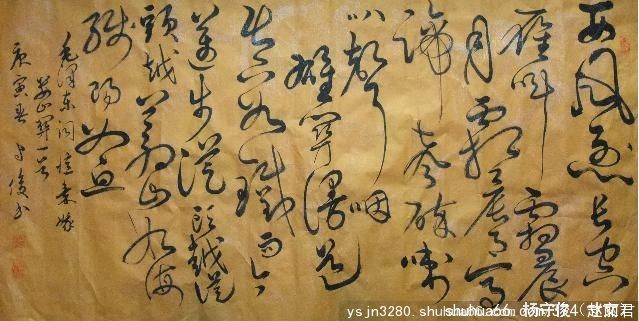 西风烈长空
雁叫霜晨
月霜晨月马
蹄声碎喇
叭声咽
雄关漫道
真如铁而今
迈步从头越从
头越苍山如海
残阳如血
毛泽东词忆秦娥
娄山关一首
庚寅春守俊书